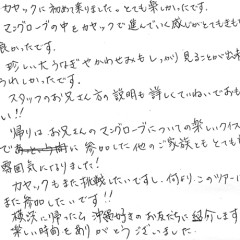 カヤックに初めて乗りました。とても楽しかったです。
マングローブの中をカヤックで進んでいく感じがとてもきもち
良かったです。
珍しい大うなぎやかわせみもしっかり見ることが出来
うれしかったです。
スタッフのお兄さん方の説明も詳しくていねいでおも
い!!
帰りはお兄さんのマングローブについての楽しいクイズ
で 参加した他のご家族ともとても
雰囲気になりました!
カヤックもまた挑戦したいですし、何より、このツアーに
また参加したいです!!
横浜に帰ったら、沖縄好きのお友だちに紹介します
楽しい時間をありがとうございました。